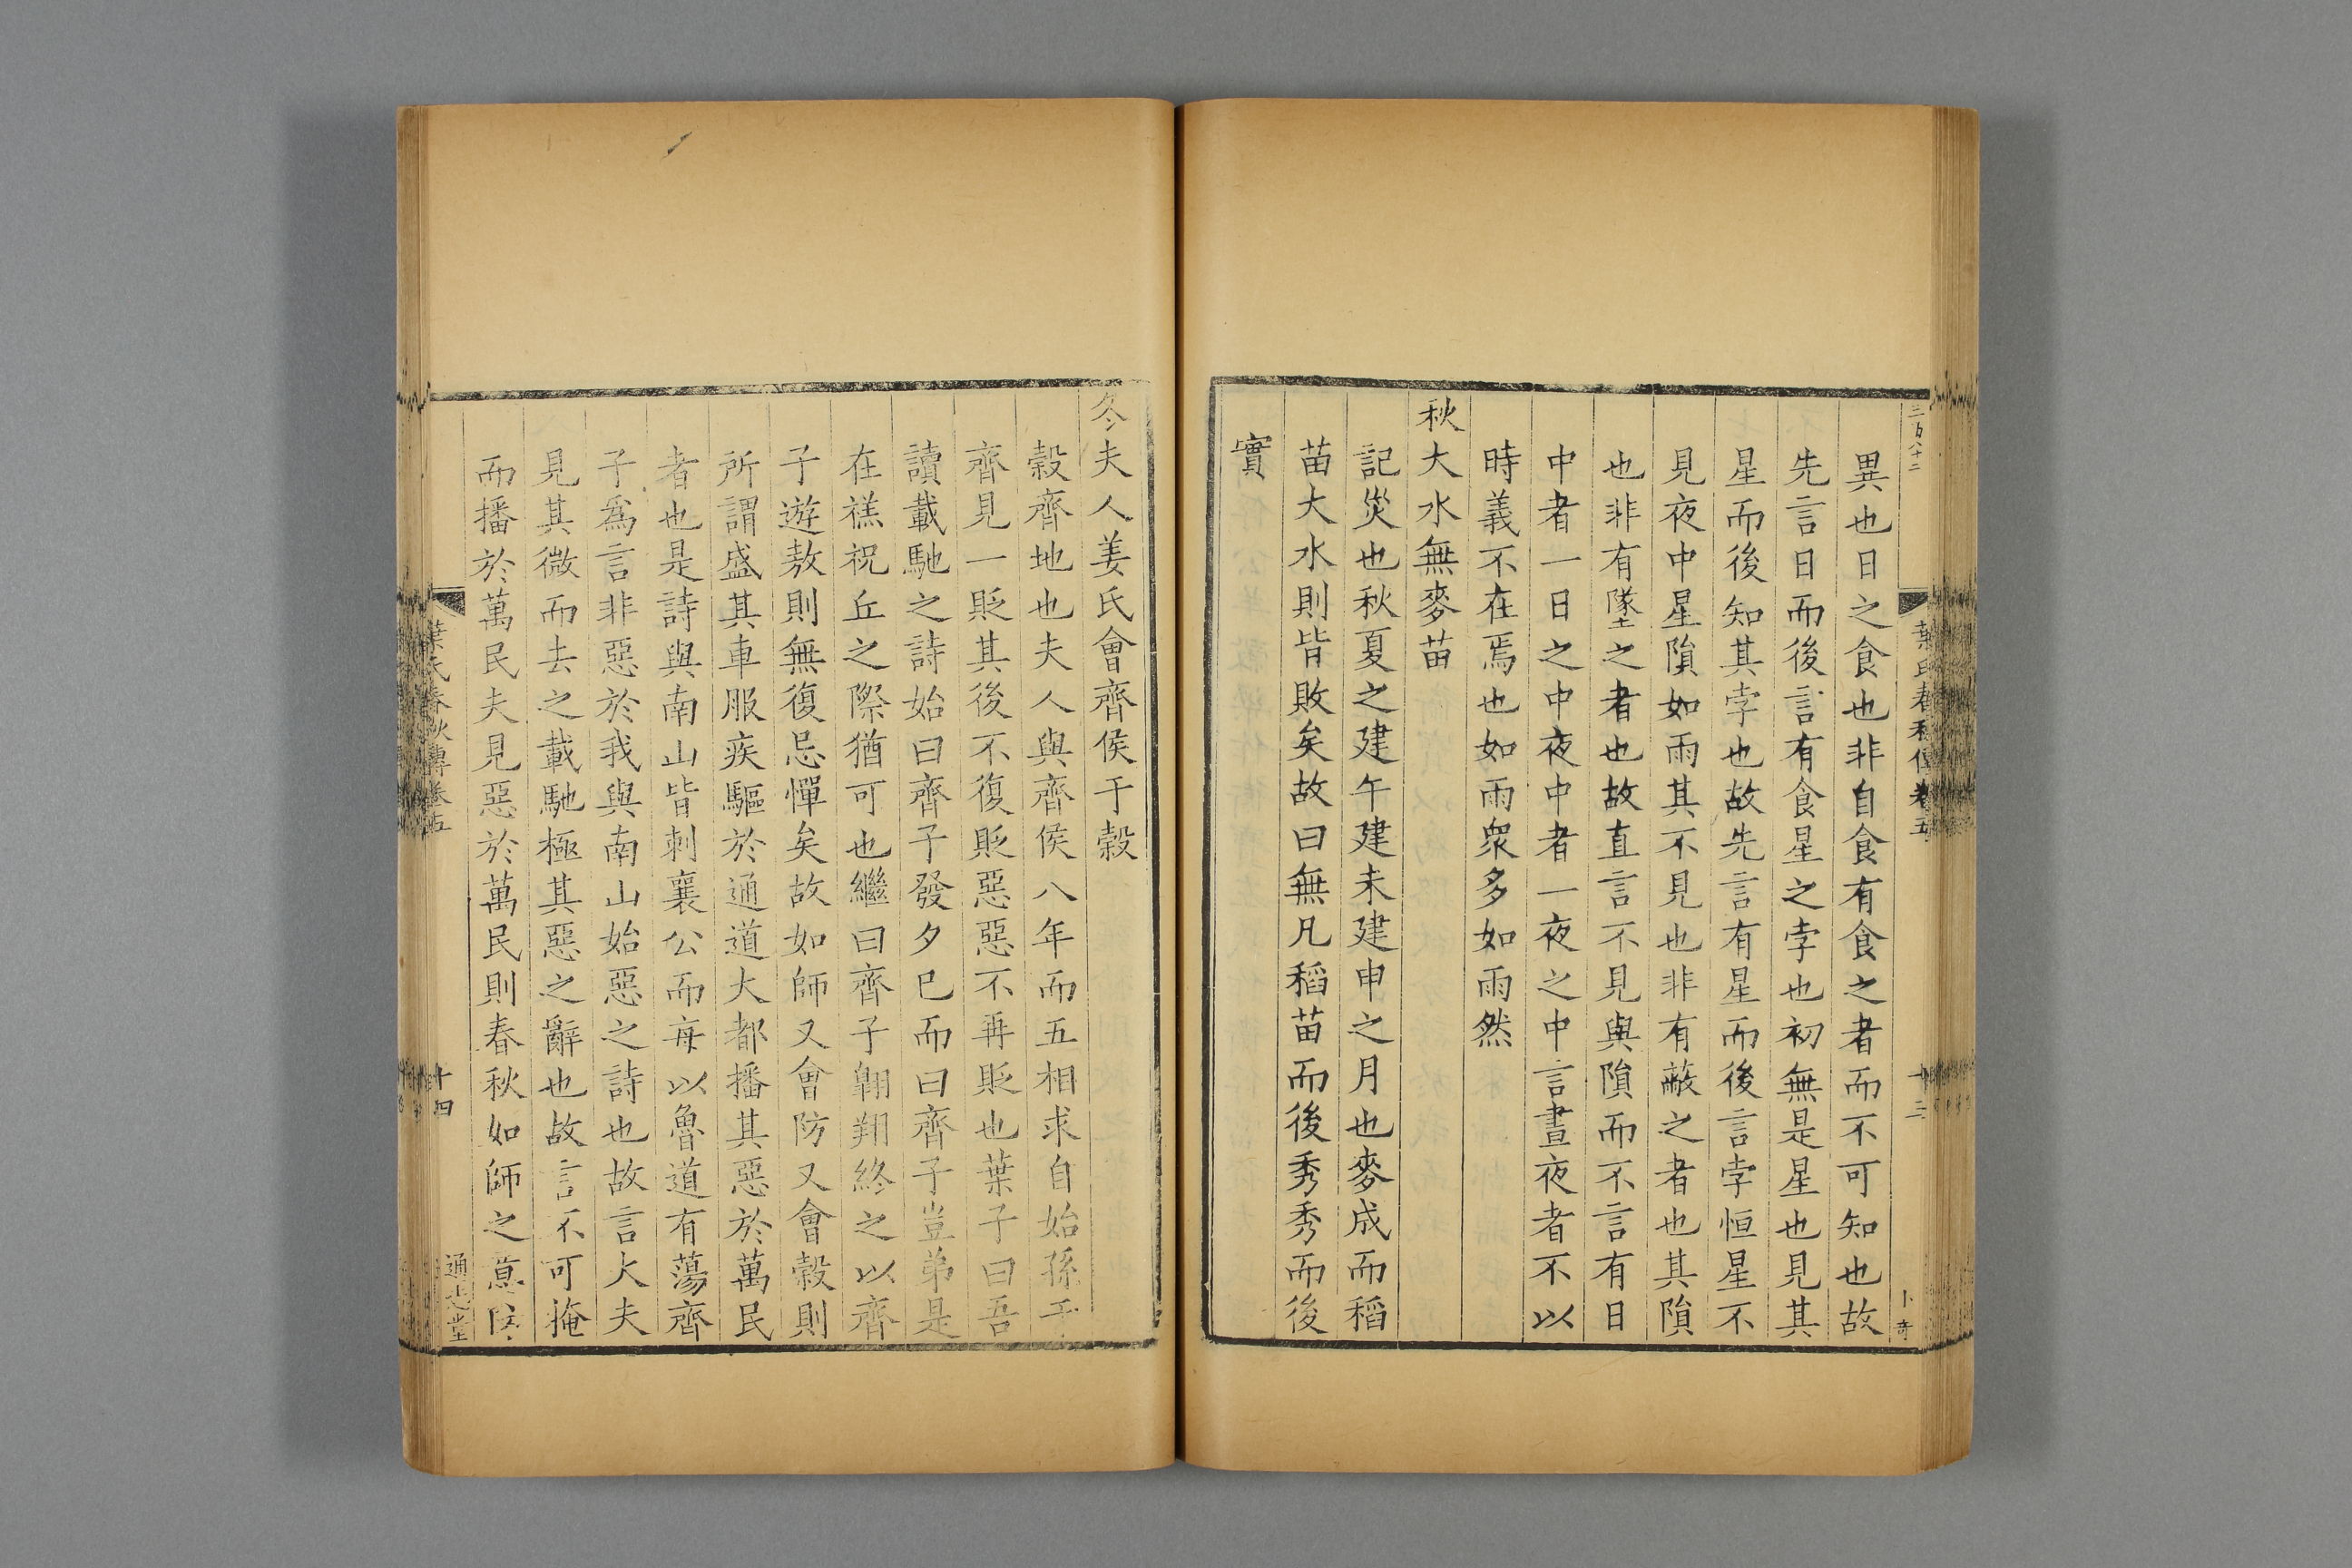 三百八十二
葉氏春秋傳卷五
十三
卜奇
異也日之食也非自食有食之者而不可知也故
先言日而後言有食星之孛也初無是星也見其
星而後知其孛也故先言有星而後言孛恒星不
見夜中星隕如雨其不見也非有蔽之者也其隕
也非有墜之者也故直言不見與隕而不言有日
中者一日之中夜中者一夜之中言晝夜者不以
時義不在焉也如雨衆多如雨然
秋大水無麥苗
記災也秋夏之建午建未建申之月也麥成而稻
苗大水則皆敗矣故曰無凡稻苗而後秀秀而後
實
冬夫人姜氏會齊侯于穀
穀齊地也夫人與齊侯八年而五相求自始孫于
齊見一貶其後不復貶惡惡不再貶也葉子曰吾
讀載馳之詩始曰齊子發夕已而曰齊子豈弟是
在禚祝丘之際猶可也繼曰齊子翱翔終之以齊
子遊敖則無復忌憚矣故如師又會防又會穀則
所謂盛其車服疾驅於通道大都播其惡於萬民
者也是詩與南山皆刺襄公而每以魯道有蕩齊
子爲言非惡於我與南山始惡之詩也故言大夫
見其微而去之載馳極其惡之辭也故言不可掩
而播於萬民夫見惡於萬民則春秋如師之意
葉氏春秋傳卷五
十四
通志堂